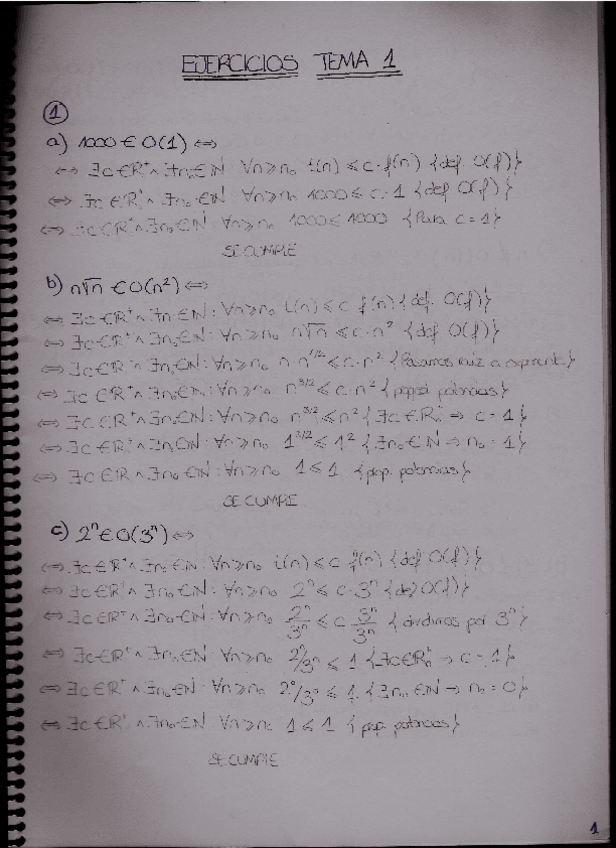 EJERCICIOS TEMA 1
①
a) 1000 ∈ O(1) ⇔
⇔ ∃c∈ℝ⁺ ∧ ∃n₀∈ℕ ∀n≥n₀ t(n) ≤ c·f(n) {def. O(f)}
⇔ ∃c∈ℝ⁺ ∧ ∃n₀∈ℕ ∀n≥n₀ 1000 ≤ c·1 {def O(f)}
⇔ ∃c∈ℝ⁺ ∧ ∃n₀∈ℕ ∀n≥n₀ 1000 ≤ 1000 {Para c=1}
SE CUMPLE
b) n√n ∈ O(n²) ⇔
⇔ ∃c∈ℝ⁺ ∧ ∃n∈ℕ: ∀n≥n₀ t(n) ≤ c f(n) {def. O(f)}
⇔ ∃c∈ℝ⁺ ∧ ∃n₀∈ℕ: ∀n≥n₀ n√n ≤ c·n² {def O(f)}
⇔ ∃c∈ℝ⁺ ∧ ∃n₀∈ℕ: ∀n≥n₀ n·n^1/2 ≤ c·n² {Pasamos raíz a exponente}
⇔ ∃c∈ℝ⁺ ∧ ∃n₀∈ℕ: ∀n≥n₀ n^3/2 ≤ c·n² { potencias}
⇔ ∃c∈ℝ⁺ ∧ ∃n₀∈ℕ: ∀n≥n₀ n^3/2 ≤ n² {∃c∈ℝ⁺ ⇒ c=1}
⇔ ∃c∈ℝ⁺ ∧ ∃n₀∈ℕ: ∀n≥n₀ 1^3/2 ≤ 1² {∃n₀∈ℕ ⇒ n₀=1}
⇔ ∃c∈ℝ ∧ ∃n₀∈ℕ: ∀n≥n₀ 1 ≤ 1 {prop. potencias}
SE CUMPLE
c) 2ⁿ ∈ O(3ⁿ) ⇔
⇔ ∃c∈ℝ⁺ ∧ ∃n₀∈ℕ: ∀n≥n₀ t(n) ≤ c f(n) {def O(f)}
⇔ ∃c∈ℝ⁺ ∧ ∃n₀∈ℕ: ∀n≥n₀ 2ⁿ ≤ c·3ⁿ {def O(f)}
⇔ ∃c∈ℝ⁺ ∧ ∃n₀∈ℕ: ∀n≥n₀ 2ⁿ/3ⁿ ≤ c 3ⁿ/3ⁿ {dividimos por 3ⁿ}
⇔ ∃c∈ℝ⁺ ∧ ∃n₀∈ℕ: ∀n≥n₀ 2ⁿ/3ⁿ ≤ 1 {∃c∈ℝ₀⁺ ⇒ c=1}
⇔ ∃c∈ℝ⁺ ∧ ∃n₀∈ℕ: ∀n≥n₀ 2⁰/3⁰ ≤ 1 {∃n₀∈ℕ ⇒ n₀=0}
⇔ ∃c∈ℝ⁺ ∧ ∃n₀∈ℕ ∀n≥n₀ 1 ≤ 1 {prop. potencias}
SE CUMPLE
1